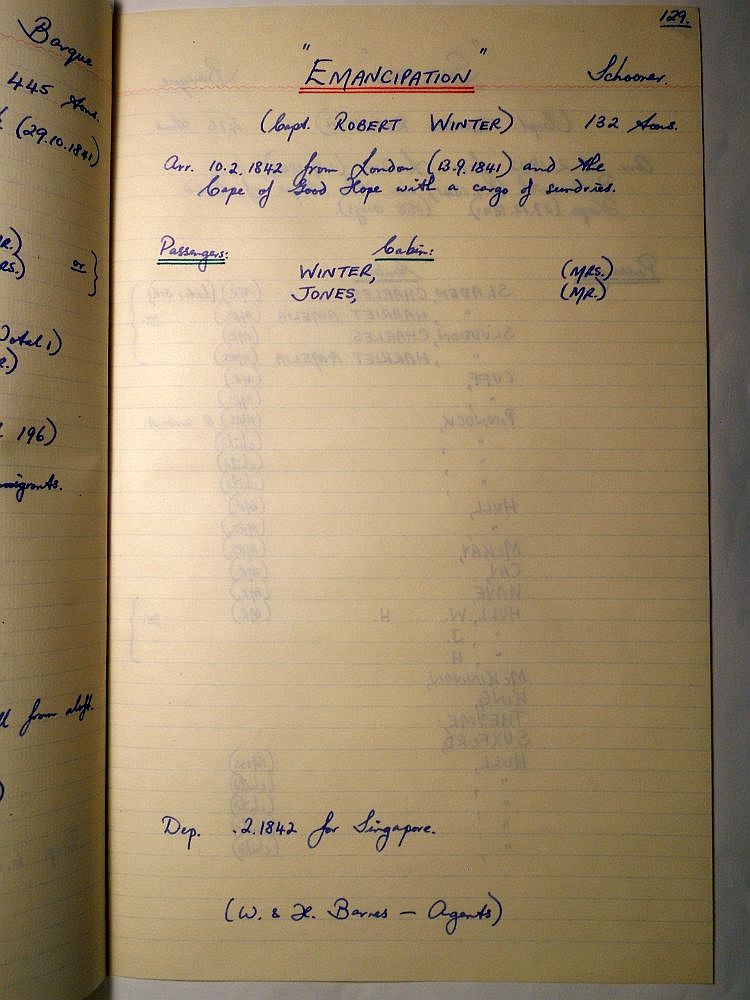 Barque
445 tons.
(29.10.1841)
or }
RS.)
Total 1)
196)
from aloft.
129.
"EMANCIPATION" Schooner.
(Capt. ROBERT WINTER) 132 tons.
Arr. 10.2.1842 from London (13.9.1841) and the
Cape of Good Hope with a cargo of sundries.
Passengers: Cabin:
WINTER, (MRS.)
JONES, (MR.)
Dep. .2.1842 for Singapore.
(W. & H. Barnes — Agents)